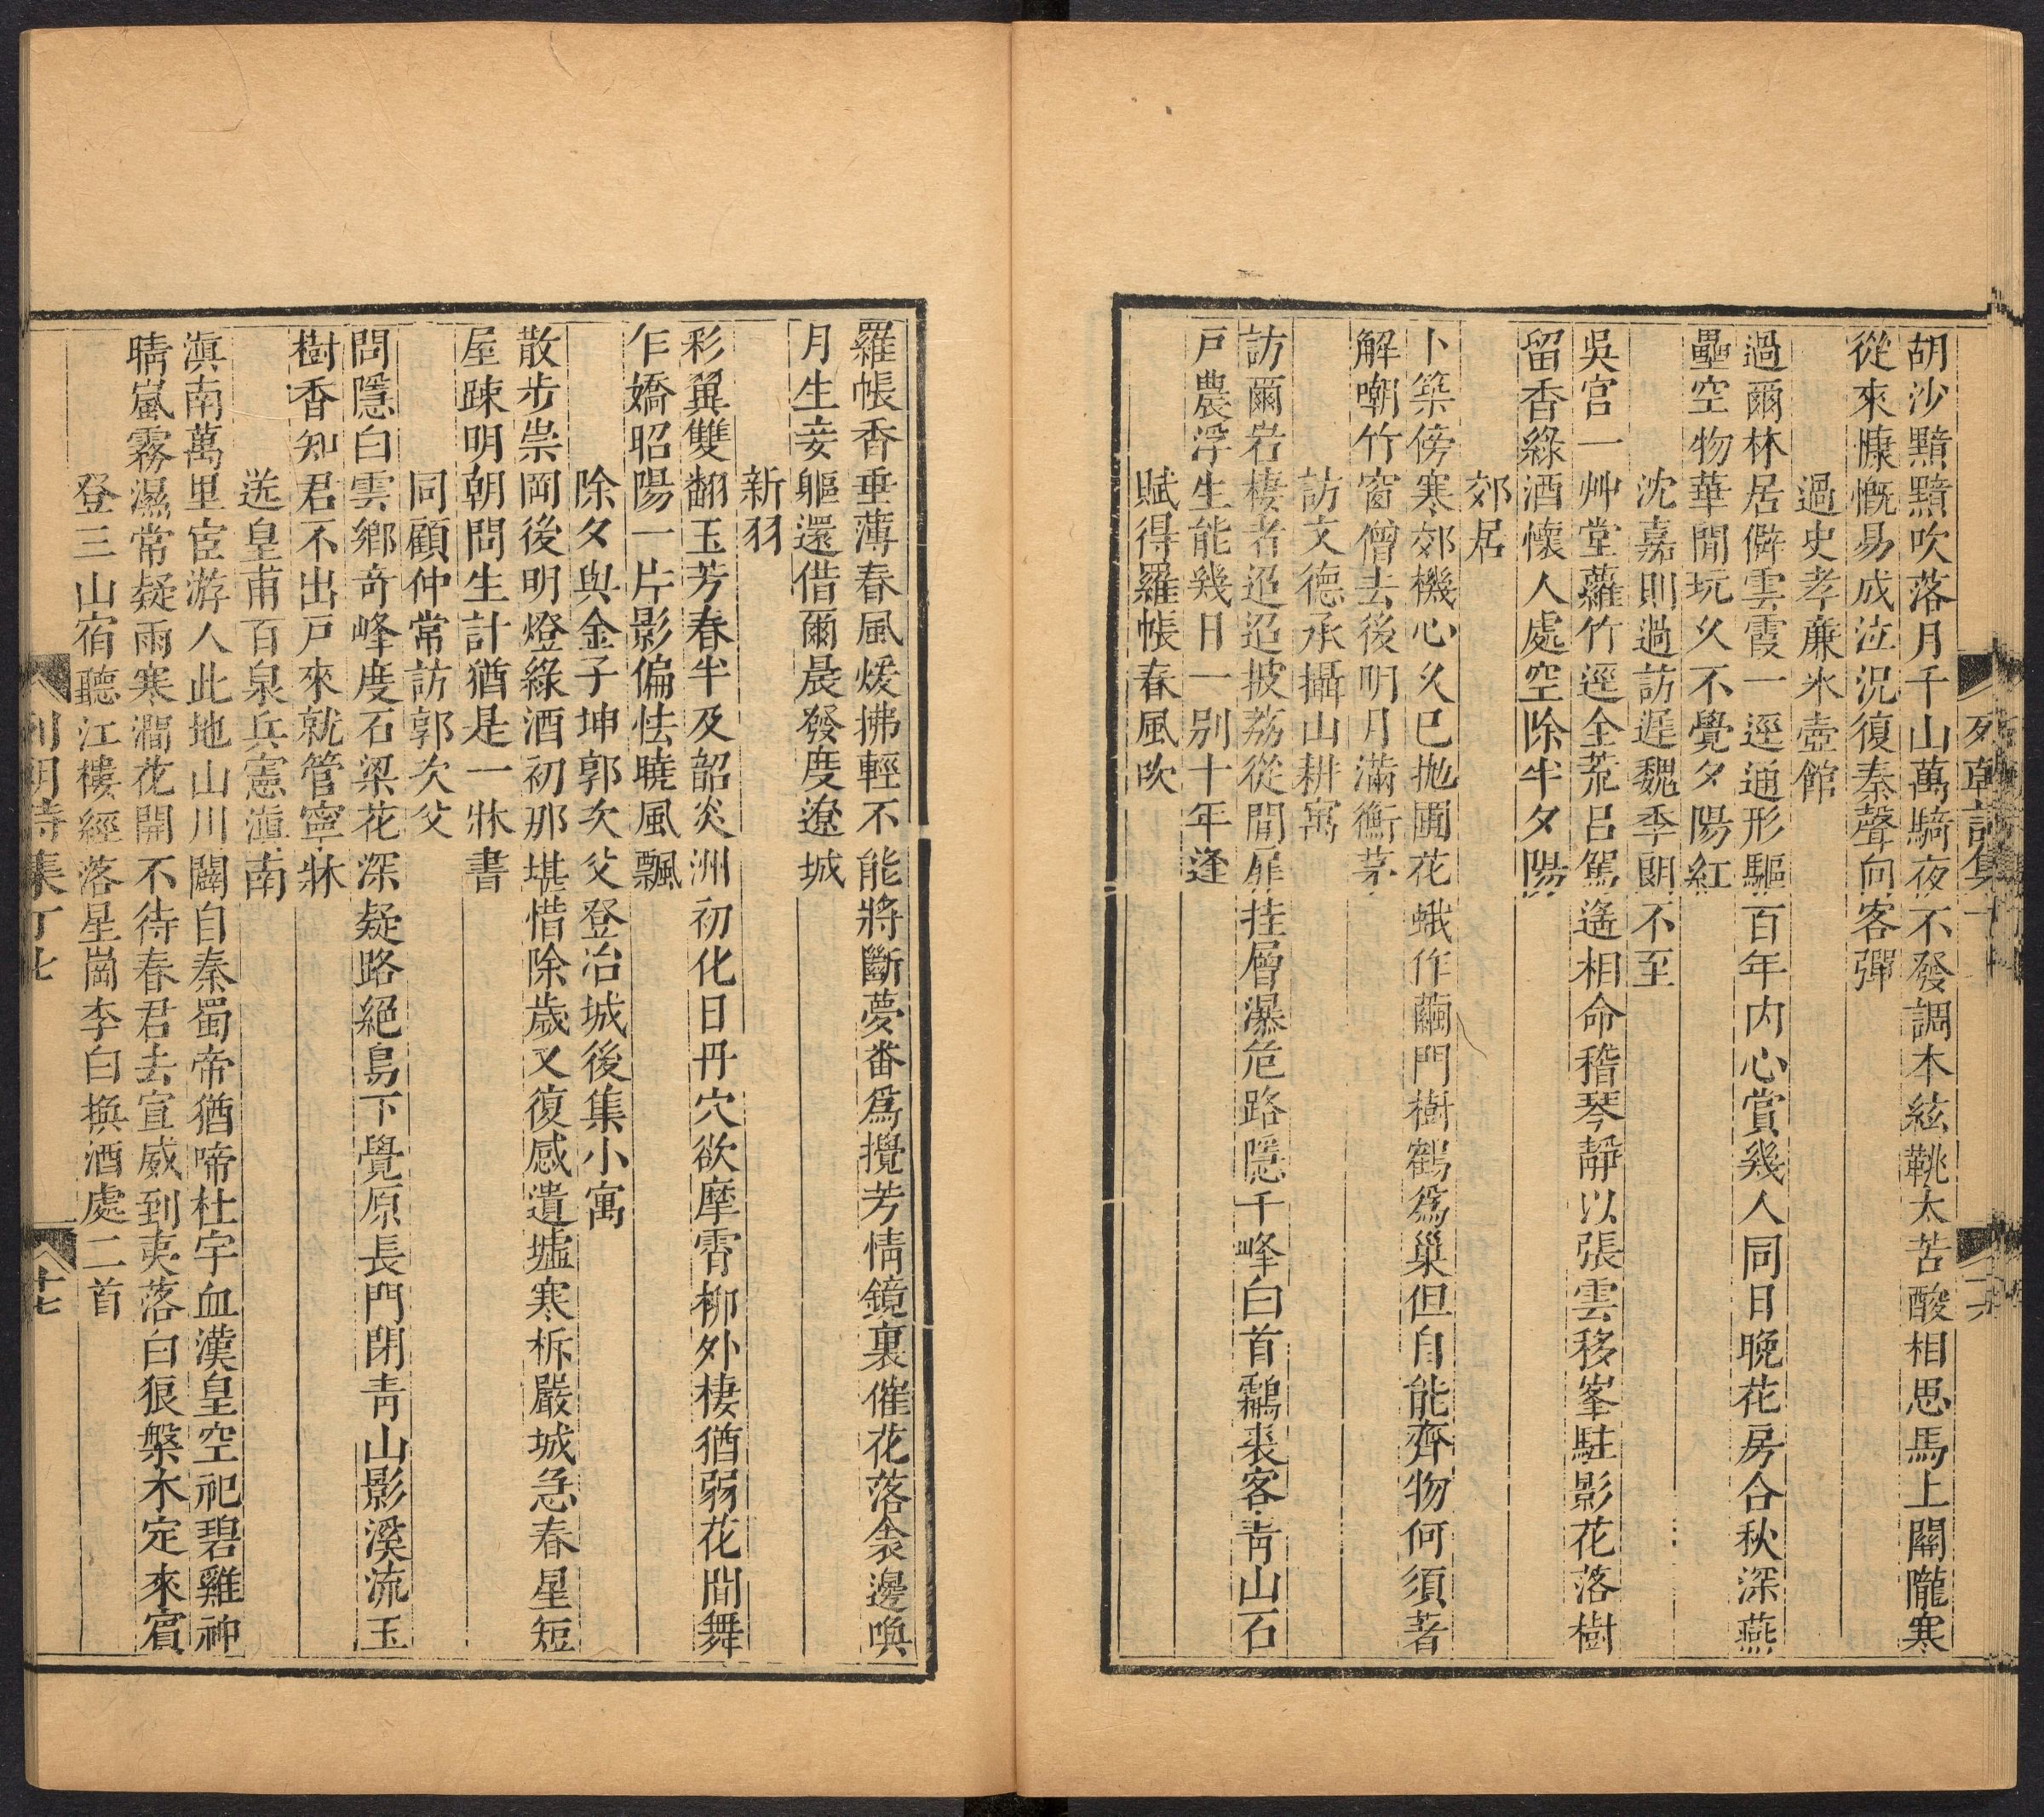 胡沙黯黯吹落月千山萬騎夜不發調本絃鞉太苦酸相思馬上關隴寒
從來慷慨易成泣況復秦聲向客彈
過史孝廉氷壺館
過爾林居僻雲霞一逕通形驅百年内心賞幾人同日晚花房合秋深燕
壘空物華閒玩久不覺夕陽紅
沈嘉則過訪遲魏季朗不至
吳宫一艸堂蘿竹逕全荒呂駕遙相命稽琴靜以張雲移峯駐影花落樹
留香綠酒懷人處空除半夕陽
郊居
卜築傍寒郊機心久已抛園花蛾作繭門樹鶴爲巢但自能齊物何須著
解嘲竹窗僧去後明月滿衡茅
訪文德承攝山耕寓
訪爾岩棲者迢迢披荔從閒扉挂層瀑危路隱千峰白首鷫裘客青山石
戶農浮生能幾日一别十年逢
賦得羅帳春風吹
羅帳香垂薄春風煖拂輕不能將斷夢番爲攪芳情鏡裏催花落衾邊喚
月生妾軀還借爾晨發度遼城
新羽
彩翼雙翻玉芳春半及韶炎洲初化日丹穴欲摩霄柳外棲猶弱花間舞
乍嬌昭陽一片影偏怯曉風飄
除夕與金子坤郭次父登冶城後集小寓
散步崇岡後明燈綠酒初那堪惜除歲又復感遺墟寒柝嚴城急春星短
屋踈明朝問生計猶是一牀書
同顧仲常訪郭次父
問隱白雲鄉奇峰度石梁花深疑路絕島下覺原長門閉青山影溪流玉
樹香知君不出戸來就管寧牀
送皇甫百泉兵憲滇南
滇南萬里宦游人此地山川闢自秦蜀帝猶啼杜宇血漢皇空祀碧雞神
晴嵐霧濕常疑雨寒澗花開不待春君去宣威到夷落白狼槃木定來賓
登三山宿聽江樓經落星崗李白換酒處二首
列朝詩集丁七
十七